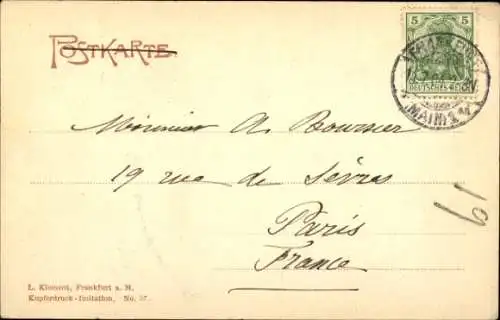 POSTKARTE.
5
DEUTSCHES REICH
(MAIN) 1
Monsieur A. Boursier
19 rue de Sèvres
Paris
France
61
L. Klement, Frankfurt a. M.
Kupferdruck-Imitation, No. 57.